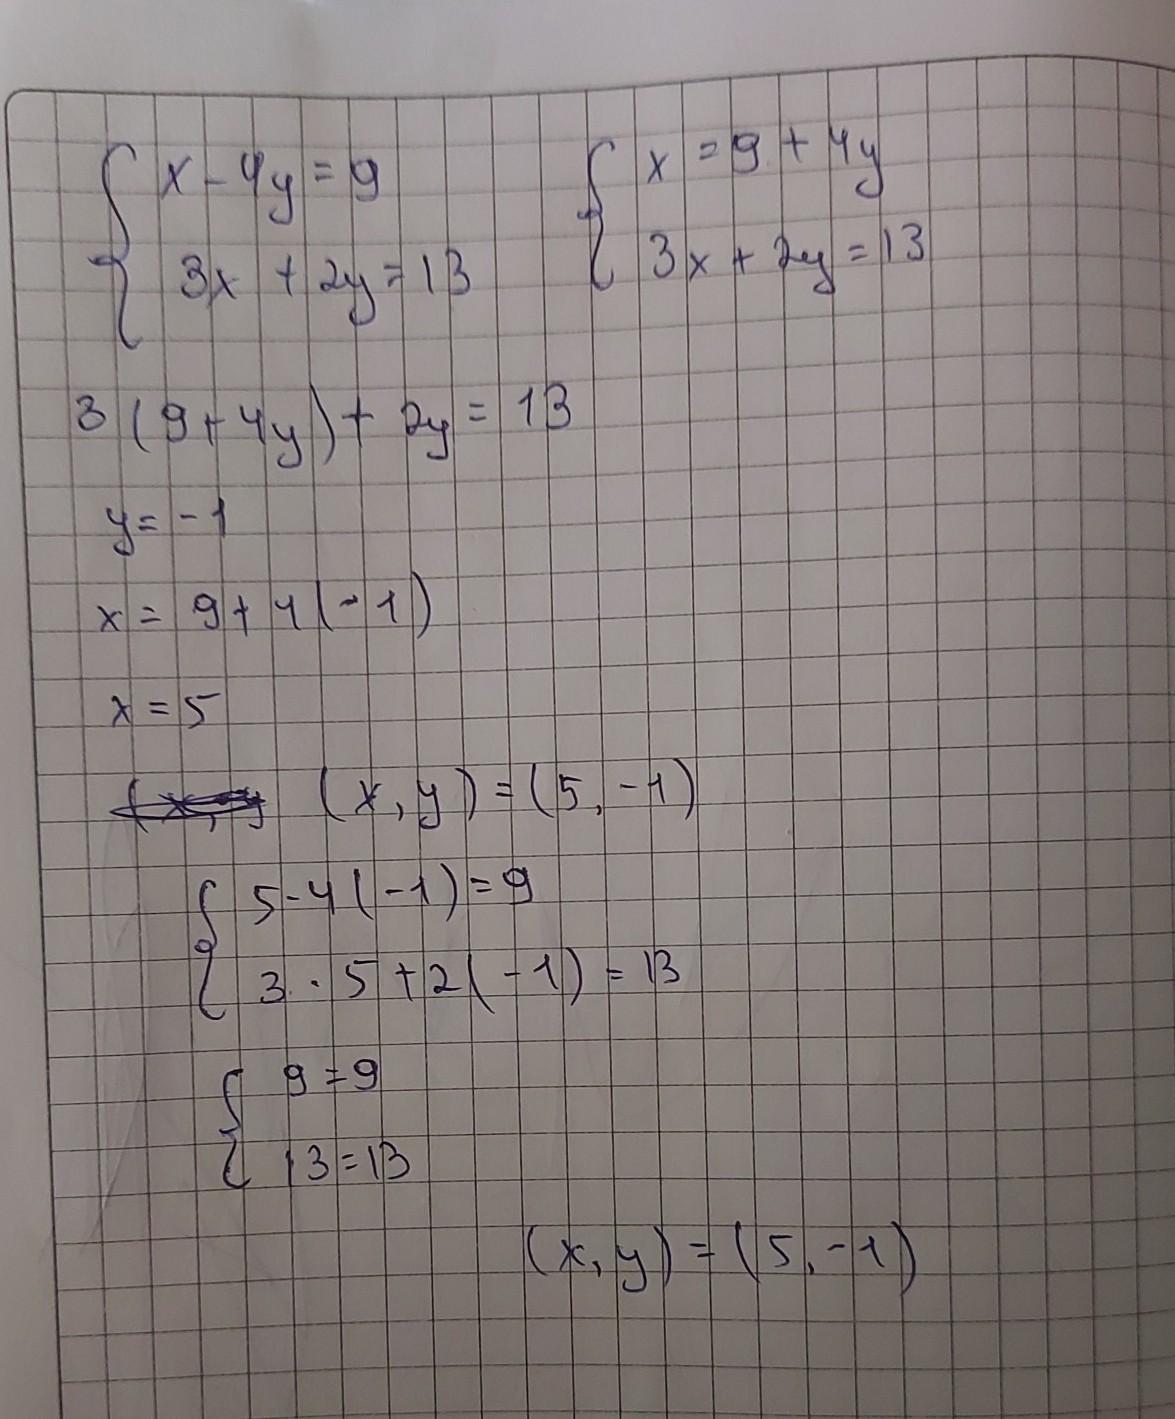 x - 4y = 9
x = 9 + 4y
3x + 2y = 13
3x + 2y = 13
3(9 + 4y) + 2y = 13
y = -1
x = 9 + 4(-1)
x = 5
(x, y) = (5, -1)
5 - 4(-1) = 9
3 · 5 + 2(-1) = 13
9 = 9
13 = 13
(x, y) = (5, -1)